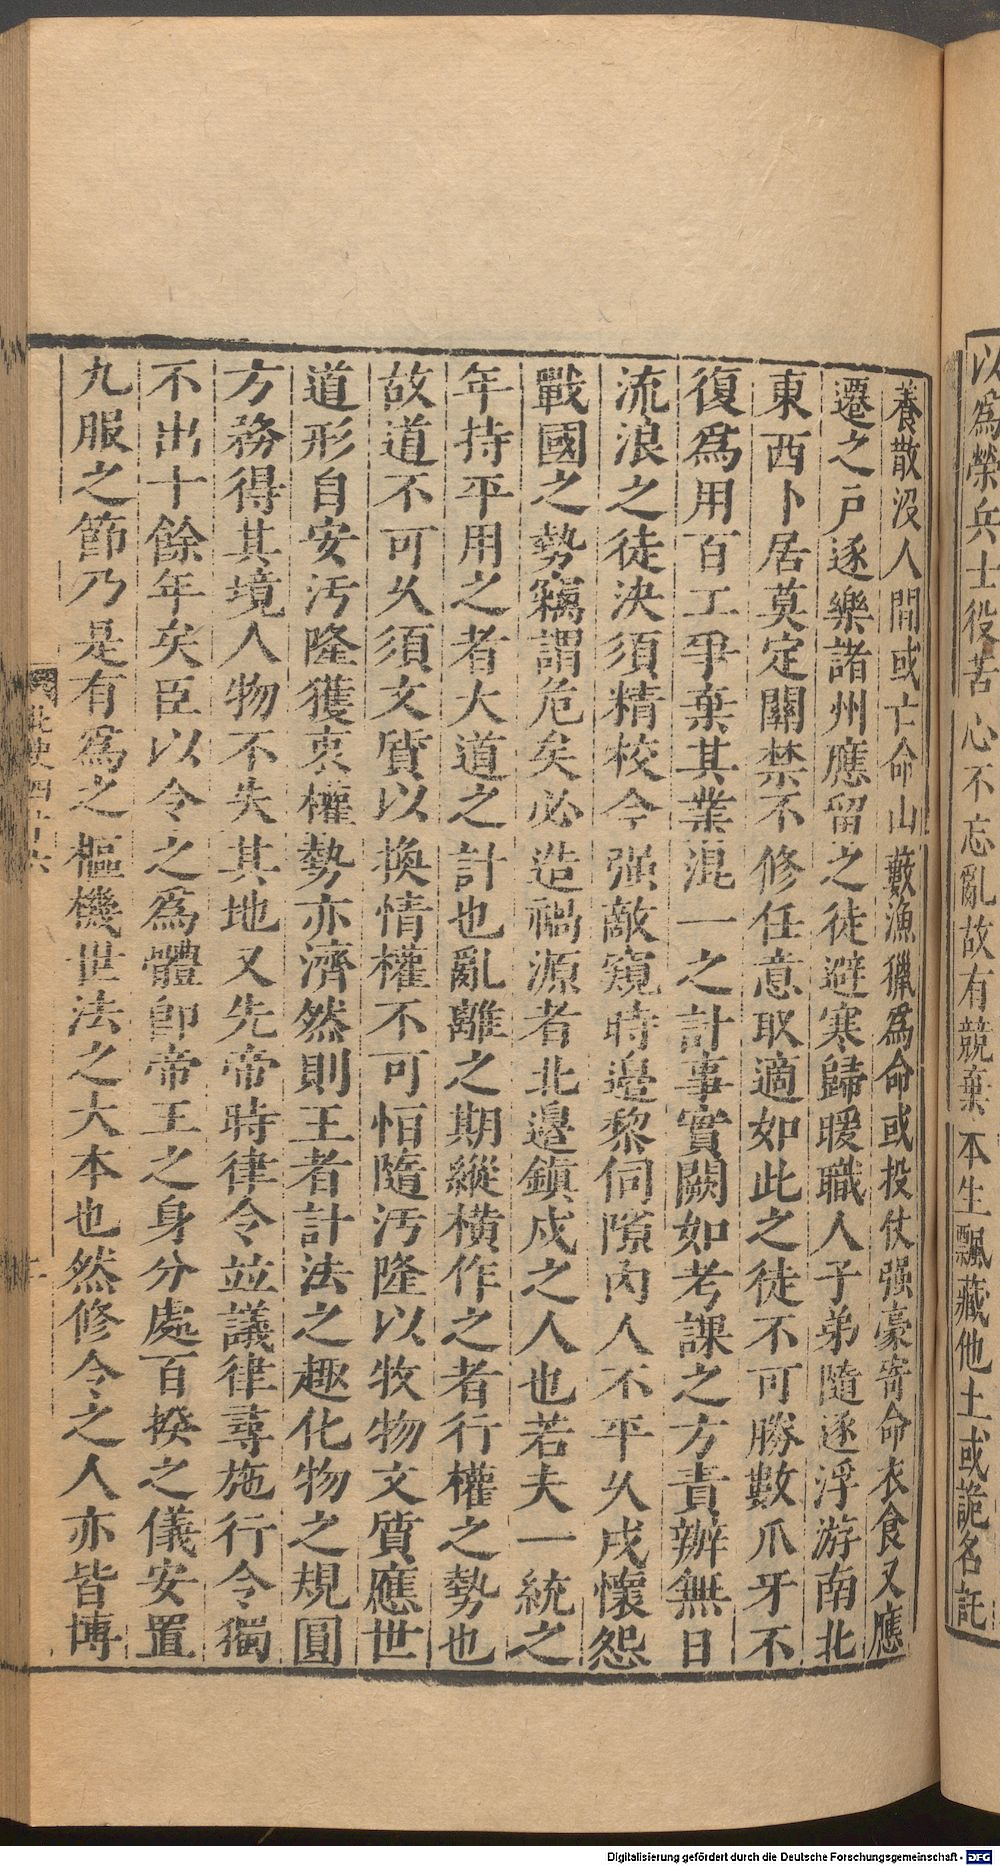 以爲榮兵士役苦心不忘亂故有競棄本生飄藏他土或詭名託
養散没人間或亡命山藪漁獵爲命或投仗强豪寄命衣食又應
遷之戸逐樂諸州應留之徒避寒歸暖職人子弟隨逐浮游南北
東西卜居莫定關禁不修任意取適如此之徒不可勝數爪牙不
復爲用百工爭棄其業混一之計事實闕如考課之方責辦無日
流浪之徒决須精校今强敵窺時邉黎伺隙内人不平乆戍懷怨
戰國之勢竊謂危矣必造禍源者北邉鎮戍之人也若夫一統之
年持平用之者大道之計也亂離之期縱横作之者行權之勢也
故道不可乆須文質以換情權不可恒隨汚隆以牧物文質應世
道形自安汚隆獲衷權勢亦濟然則王者計法之趣化物之規圓
方務得其境人物不失其地又先帝時律令竝議律尋施行令獨
不出十餘年矣臣以令之爲體卽帝王之身分處百揆之儀安置
九服之節乃是有爲之樞機世法之大本也然修令之人亦皆博
北史四十六
Digitalisierung gefördert durch die Deutsche Forschungsgemeinschaft - DFG